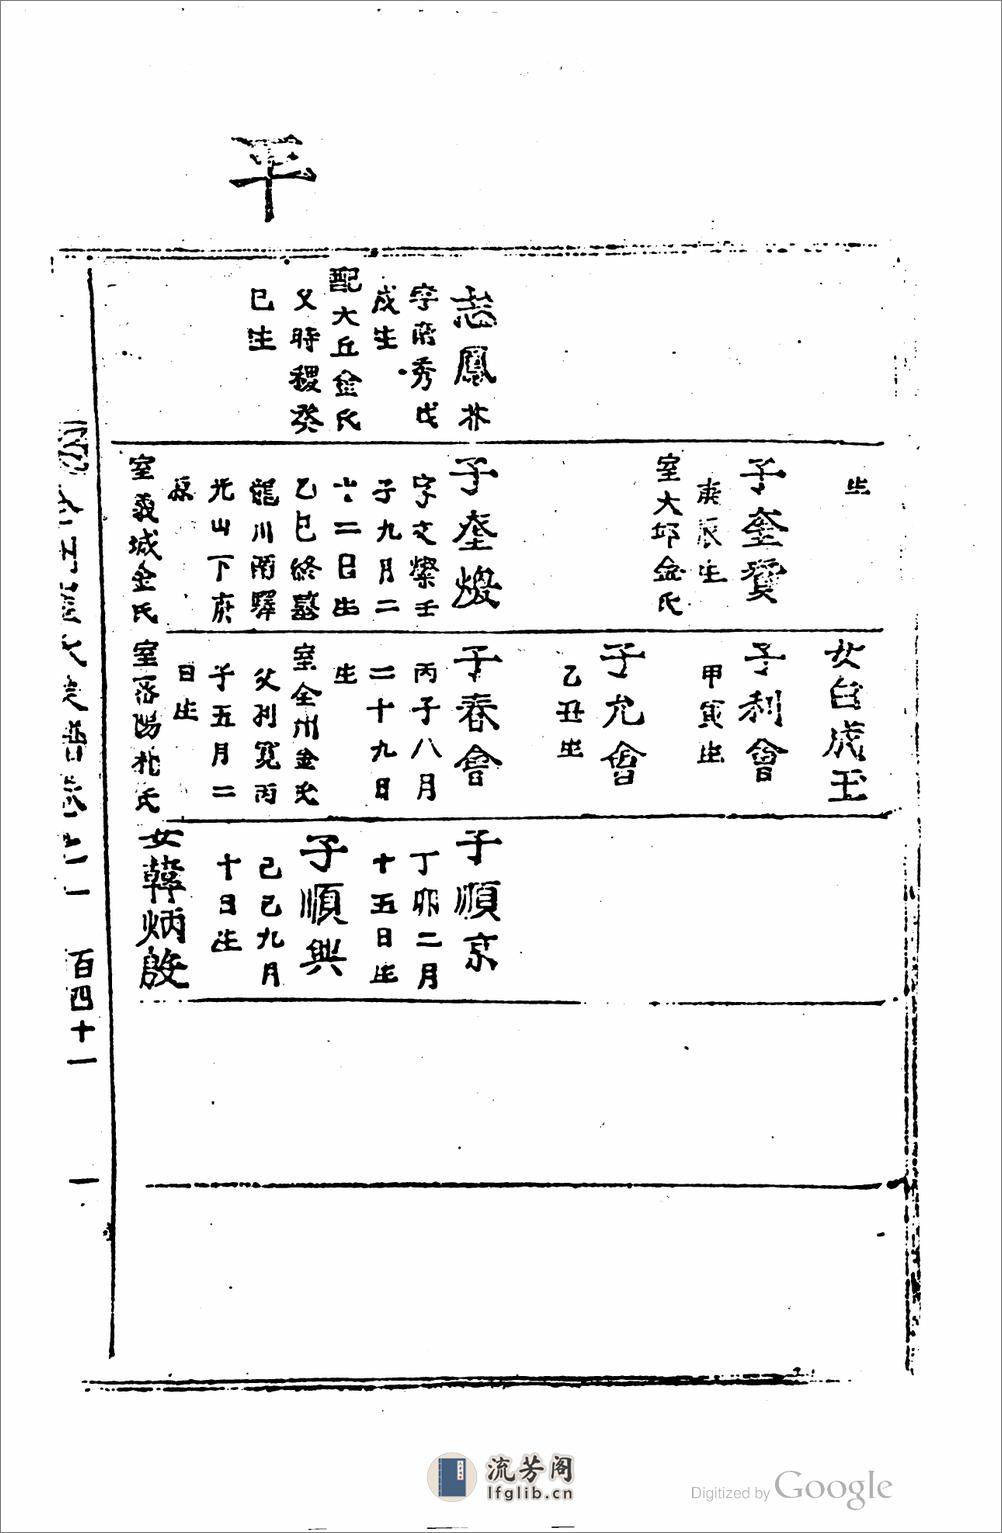 平
志鳳林
字彦秀戊
戌生
配大丘金氏
父時稷癸
巳生
生
子奎寶
庚辰生
室大邱金氏
子奎煥
字文燦壬
子九月二
十二日生
乙巳終墓
龍川南驛
光山下庚
原
室義城金氏
女白成玉
子利會
甲寅生
子允會
乙丑生
子春會
丙子八月
二十九日
生
室全州金氏
父利寬丙
子五月二
日生
室密陽朴氏
子順京
丁卯二月
十五日生
子順興
己巳九月
十日生
女韓炳殷
氏族譜卷之一
百四十一
流芳阁
lfglib.cn
Digitized by Google